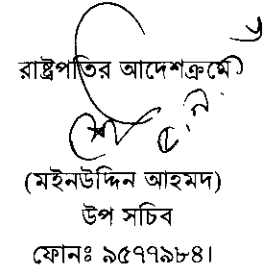 রাষ্ট্রপতির আদেশক্রমে
(মইনউদ্দিন আহমদ)
উপ সচিব
ফোনঃ ৯৫৭৭৯৮৪।